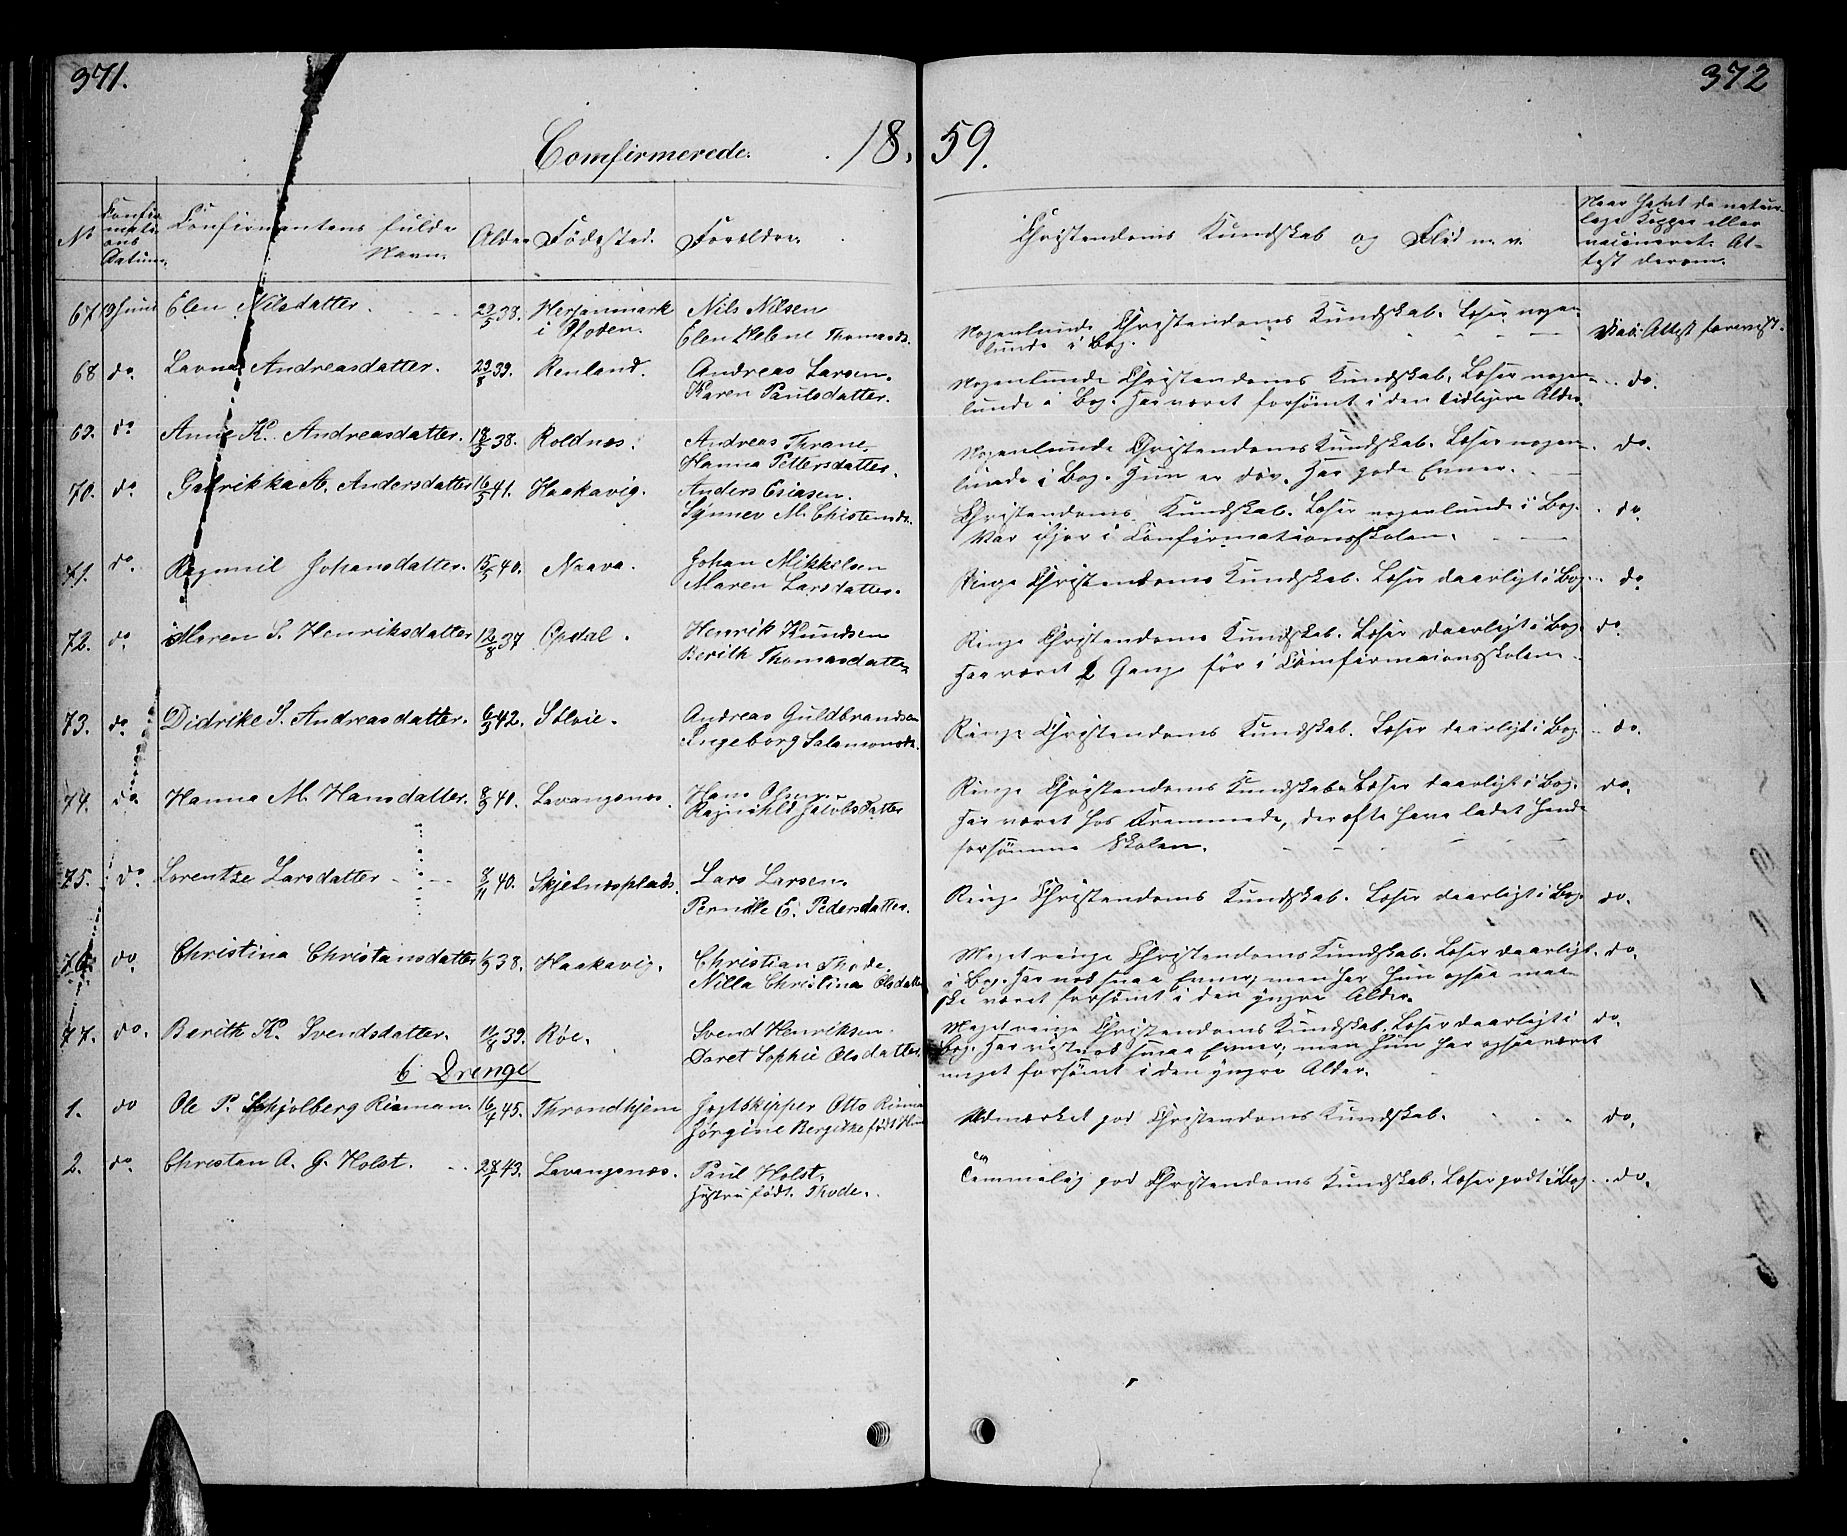 371.
372
Comfirmerede. 18. 59.
No
Confir-
mati-
ons
Datum.
Confirmantens fulde
Navn.
Alder
Födested.
Forældre.
Christendoms Kundskab og Flid m. v.
Naar havt de natur-
lige Kopper eller
vaccineret. At-
test derom.
67 19 Juni Elen Nilsdatter. 29/5 38. Herjanmark Nils Nilsen
i Ofoden. Elen Helene Thomasd.
Nogenlunde Christendoms Kundskab. Læser nogen-
lunde i Bog. Vac: Attest forevist.
68 do. Lavna Andreasdatter. 29/8 39. Renland. Andreas Larsen.
Karen Paulsdatter.
Nogenlunde Christendoms Kundskab. Læser nogen- do.
lunde i Bog. Har været forsömt i den tidligere Alder.
69. do Anne K. Andreasdatter. 18/3 38. Roldnæs. Andreas Thrane,
Hanna Pettersdatter.
Nogenlunde Christendoms Kundskab. Læser nogen- do.
lunde i Bog. Hun er döv. Har gode Evner.
70. do Gabrikka A. Andersdatter 16/3 41. Haakavig. Anders Esiasen.
Synnev M. Chistensd.
Christendoms Kundskab. Læser nogenlunde i Bog. do
Var ifjor i Confirmationsskolen.
71. do. Ragnnil Johansdatter. 15/5 40. Naava. Johan Mikkilsen
Maren Larsdatter.
Ringe Christendoms Kundskab. Læser daarligt i Bog. do
72. do. Maren S. Henriksdatter 12/8 37 Opdal. Henrik Knudsen
Berith Thomasdatter
Ringe Christendoms Kundskab. Læser daarligt i Bog. do.
Har været 2 Gange för i Comfirmaionsskolen.
73. do. Didrike S. Andreasdatter. 6/3 42. Sölvie. Andreas Guldbrandsen
Ingeborg Salamonsd.
Ringe Christendoms Kundskab. Læser daarligt i Bog. do.
74. do. Hanna M. Hansdatter. 8/3 40. Lavangsnæs. Hans Olsen
Ragnahld Jacobsdatter
Ringe Christendoms Kundskab. Læser daarligt i Bog. do.
Har været hos Fremmede, der ofte have ladet hende
forsömme Skolen.
75. do. Lorentze Larsdatter 8/11 40. Skjelnesplads. Lars Larsen.
Pernille E. Pedersdatter.
Ringe Christendoms Kundskab. Læser daarligt i Bog. do.
76. do. Christina Christansdatter 6/3 38. Haakavig. Christian Thode
Nilla Christina Olsdatter
Meget ringe Christendoms Kundskab. Læser daarligt do.
i Bog. Har nok smaa Evner, men har hun ogsaa man-
ske været forsömt i den yngre Alder.
77. do. Berith K. Svendsdatter. 12/8 39. Röe. Svend Henriksen.
Doret Sophie Olsdatter.
Meget ringe Christendoms Kundskab. Læser daarligt i do.
Bog. Har vist nok smaa Evner, men hun har ogsaa været
meget forsömt i den yngre Alder.
6 Drenge
1. do Ole P. Schjölberg Rieman. 16/7 45. Throndhjem Jagtskipper Otto
Jörgine Bergitke född
Udmærket god Christendoms Kundskab. do.
2. do. Christan A. G. Holst. 28/1 43. Lavangsnæs. Paul Holst,
Hustru född Thode.
Temmelig god Christendoms Kundskab. Læser godt i Bog. do.